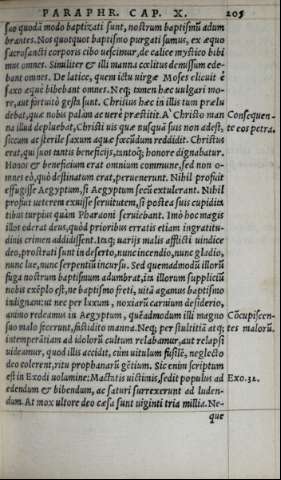 PARAPHR. CAP. X. 205
suo quodā modo baptizati sunt, nostrum baptismū adum
brantes. Nos quotquot baptismo purgati sumus, ex æquo
sacrosancti corporis cibo uescimur, de calice mystico bibi
mus omnes. Similiter & illi manna cœlitus demissum ede-
bant omnes. De latice, quem ictu uirgæ Moses elicuit è
saxo æque bibebant omnes. Neq; tamen hæc uulgari mo-
re, aut fortuitò gesta sunt. Christus hæc in illis tum prælu
debat, quæ nobis palàm ac uerè præstitit. A Christo man
na illud depluebat, Christi uis quæ nusquā suis non adest,
siccam ac sterile saxum aquæ fœcundum reddidit. Christus
erat, qui suos tantis beneficijs, tantoq; honore dignabatur.
Honor & beneficium erat omnium commune, sed non o-
mnes eò, quò destinatum erat, peruenerunt. Nihil profuit
effugisse Aegyptum, si Aegyptum secū extulerant. Nihil
profuit ueterem exuisse seruitutem, si postea suis cupidita
tibus turpius quàm Pharaoni seruiebant. Imò hoc magis
illos oderat deus, quòd prioribus erratis etiam ingratitu-
dinis crimen addidissent. Itaq; uarijs malis afflicti uindice
deo, prostrati sunt in deserto, nunc incendio, nunc gladio,
nunc lue, nunc serpentiū incursu. Sed quemadmodū illorū
fuga nostrum baptismum adumbrat, ita illorum suppliciū
nobis exēplo est, ne baptismo freti, uitā agamus baptismo
indignam: ut nec per luxum, noxiarū carnium desiderio,
animo redeamus in Aegyptum, quēadmodum illi magno
suo malo fecerunt, fastidito manna. Neq; per stultitiā atq;
intemperātiam ad idolorū cultum relabamur, aut relapsi
uideamur, quod illis accidit, cùm uitulum fusilē, neglecto
deo colerent, ritu prophanarū gētium. Sic enim scriptum
est in Exodi uolumine: Mactatis uictimis, sedit populus ad
edendum & bibendum, ac saturi surrexerunt ad luden-
dum. At mox ultore deo cæsa sunt uiginti tria millia. Ne-
que
Consequen-
te eos petra.
Cōcupiscen-
tes malorū.
Exo.32.